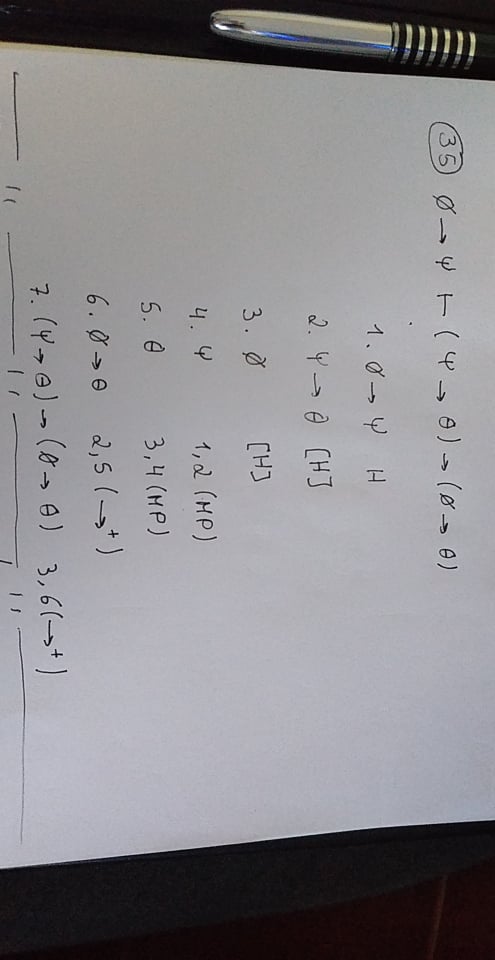 (35) ø → ψ ⊢ (ψ → θ) → (ø → θ)
1. ø → ψ H
2. ψ → θ [H]
3. ø [H]
4. ψ 1,2 (MP)
5. θ 3,4 (MP)
6. ø → θ 2,5 (→⁺)
7. (ψ → θ) → (ø → θ) 3,6 (→⁺)